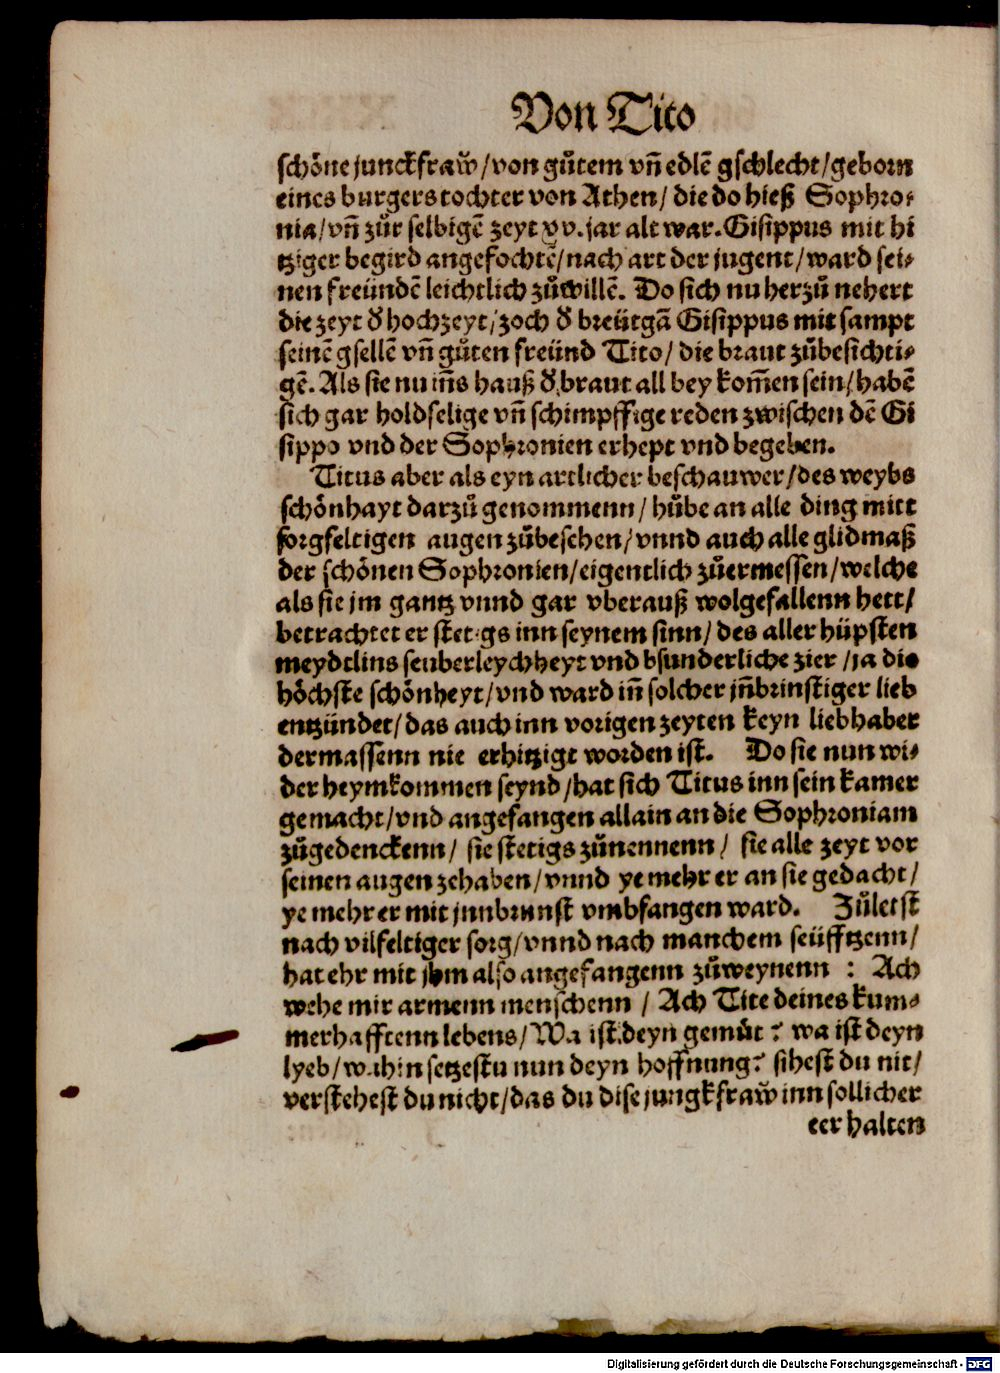 Von Tito
schöne junckfraw̃ / von gůtem vñ edlẽ gschlecht / geborn
eines burgers tochter von Athen / die do hieß Sophro⸗
nia / vñ zůr selbigẽ zeyt xv. jar alt war. Gisippus mit hi
tziger begird angefochtẽ / nach art der jugent / ward sei⸗
nen freündẽ leichtlich zůwillẽ. Do sich nu herzů nehert
die zeyt d̓ hochzeyt / zoch d̓ breütgã Gisippus mit sampt
seinẽ gsellẽ vñ gůten freünd Tito / die braut zůbesichti⸗
gẽ. Als sie nu iñs hauß d̓ braut all bey kom̃en sein / habẽ
sich gar holdselige vñ schimpffige reden zwischen dẽ Gi
sippo vnd der Sophronien erhept vnd begeben.
Titus aber als eyn artlicher beschauwer / des weybs
schönhayt darzů genommenn / hůbe an alle ding mitt
sorgfeltigen augen zůbesehen / vnnd auch alle glidmaß
der schönen Sophronien / eigentlich zůermessen / welche
als sie jm gantz vnnd gar vberauß wolgefallenn hett /
betrachtet er stetigs inn seynem sinn / des aller hüpsten
meydtlins seuberleychheyt vnd bsunderliche zier / ja die
höchste schönheyt / vnd ward iñ solcher jñbrinstiger lieb
entzündet / das auch inn vorigen zeyten keyn liebhaber
dermassenn nie erhitzigt worden ist. Do sie nun wi⸗
der heymkommen seynd / hat sich Titus inn sein kamer
gemacht / vnd angefangen allain an die Sophroniam
zůgedenckenn / sie stetigs zůnennenn / sie alle zeyt vor
seinen augen zehaben / vnnd ye mehr er an sie gedacht /
ye mehr er mit jnnbrunst vmbfangen ward. Zůletst
nach vilfeltiger sorg / vnnd nach manchem seüfftzenn /
hat ehr mit jhm also angefangenn zůweynenn : Ach
wehe mir armenn menschenn / Ach Tite deines kum⸗
merhafftenn lebens / Wa ist deyn gemůt ? wa ist deyn
lyeb / wahin setzestu nun deyn hoffnung ? sihest du nit /
verstehest du nicht / das du dise jungkfraw̃ inn sollicher
eer halten
Digitalisierung gefördert durch die Deutsche Forschungsgemeinschaft - DFG